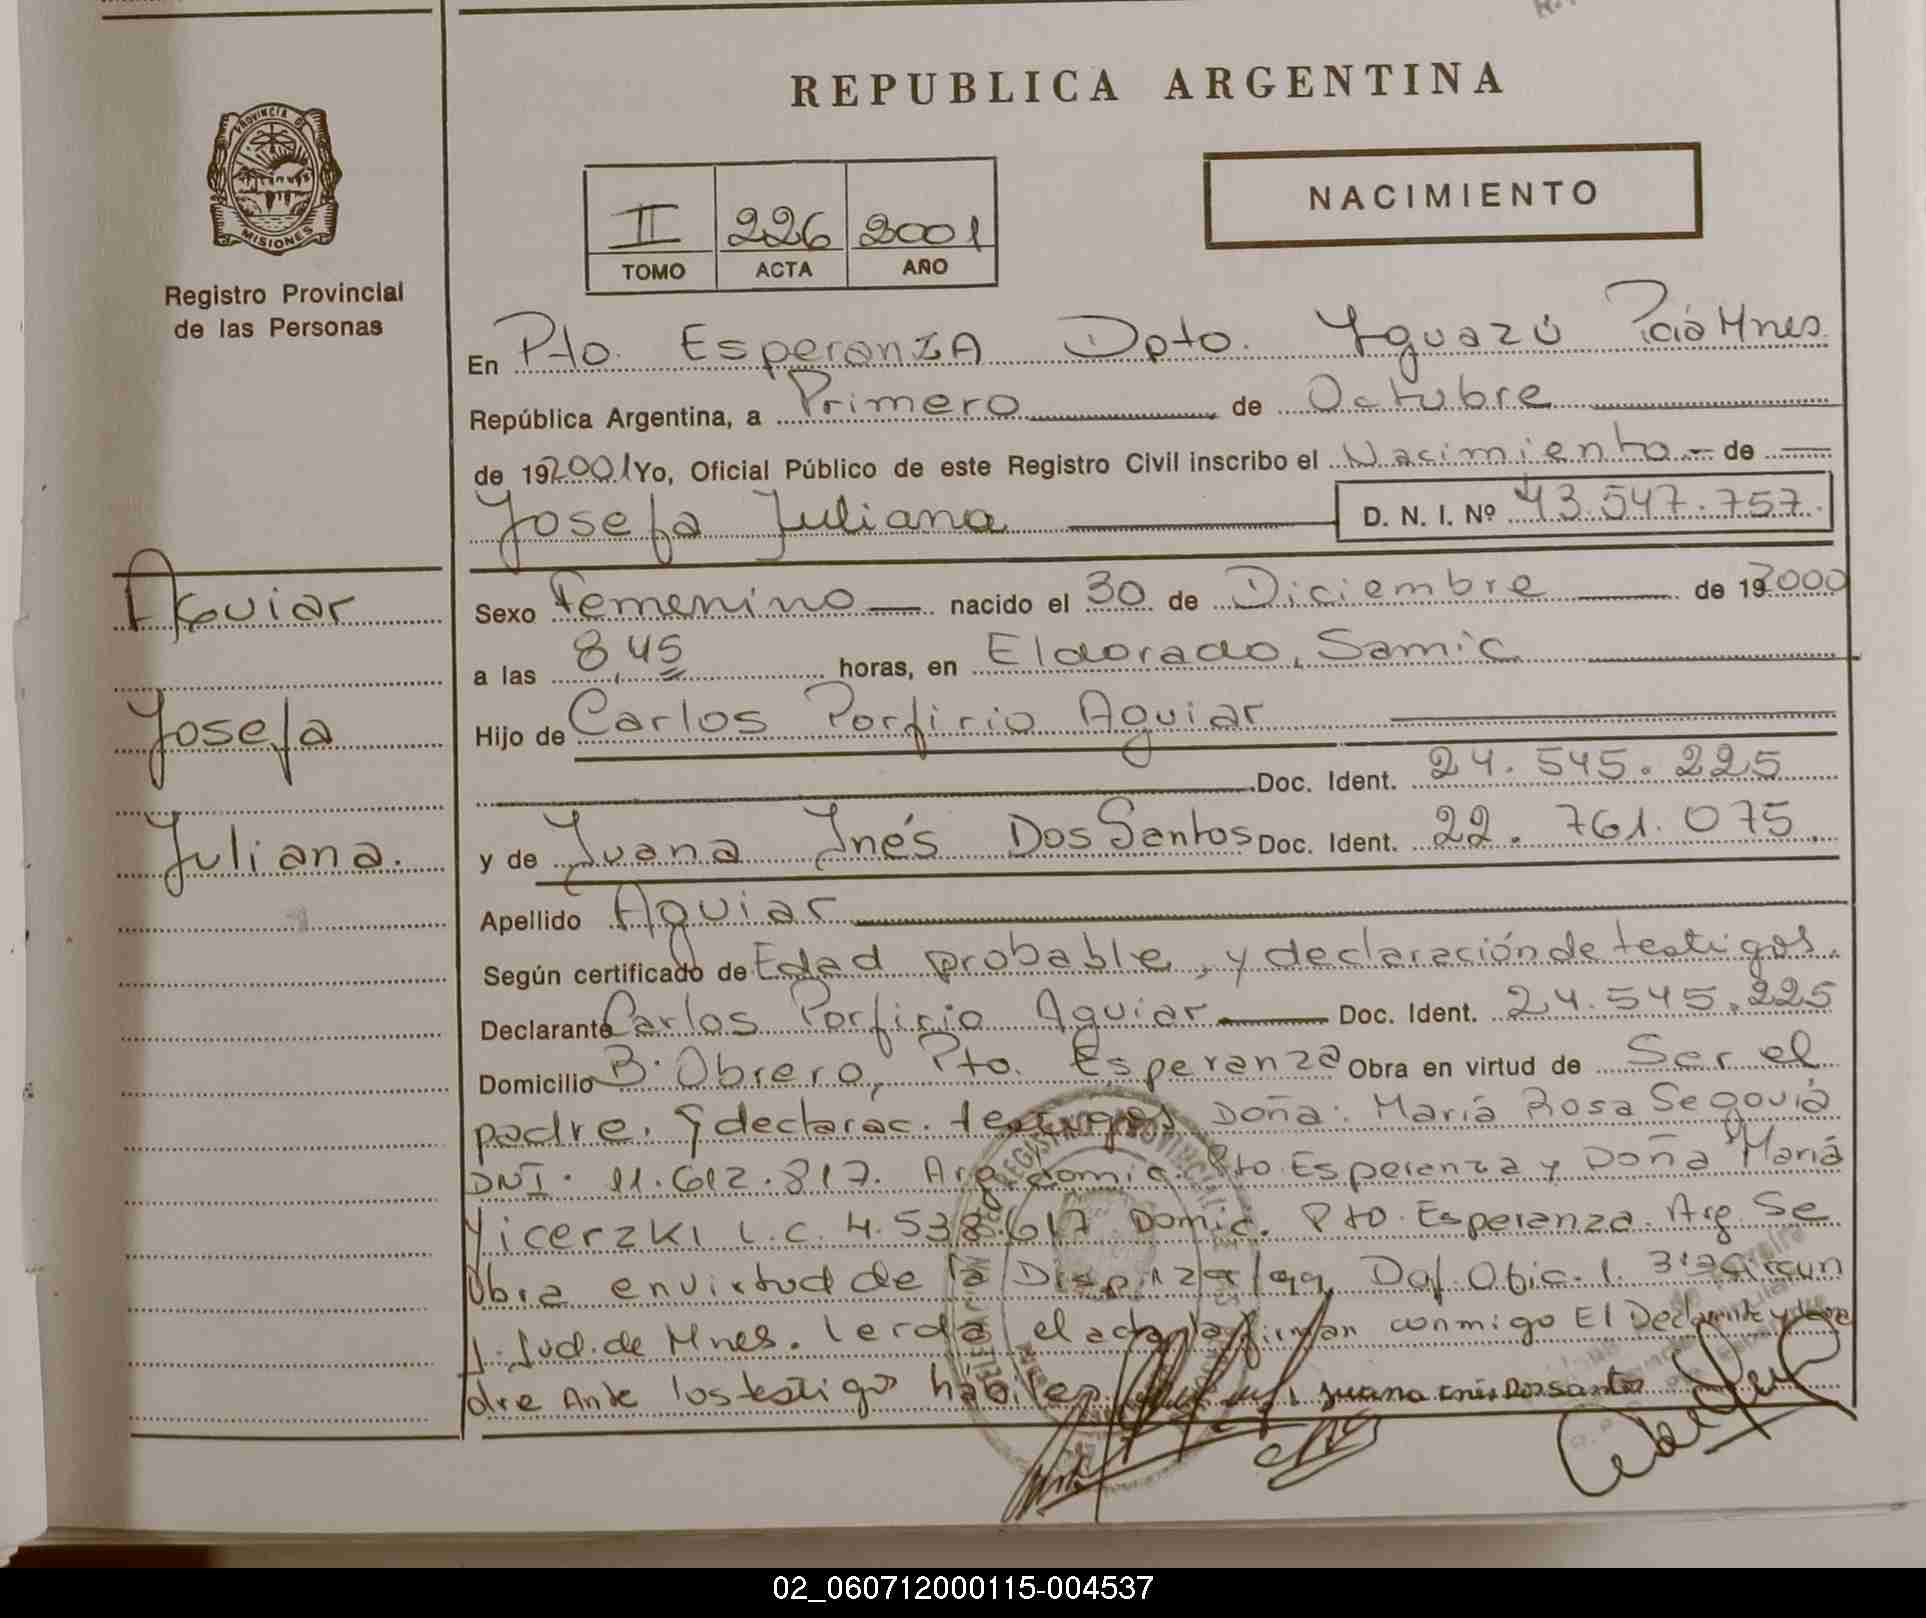 REPUBLICA ARGENTINA
PROVINCIA DE
MISIONES
Registro Provincial
de las Personas
NACIMIENTO
II 226 2001
TOMO ACTA AÑO
En Pto. Esperanza Dpto. Yguazú Pcia Mnes.
República Argentina, a Primero de Octubre
de 192001 Yo, Oficial Público de este Registro Civil inscribo el Nacimiento de
Josefa Juliana D. N. I. Nº 43.547.757.
Aguiar
Josefa
Juliana.
Sexo Femenino nacido el 30 de Diciembre de 192000
a las 8,45 horas, en Eldorado, Samic.
Hijo de Carlos Porfirio Aguiar
Doc. Ident. 24.545.225
y de Juana Inés Dos Santos Doc. Ident. 22.761.075
Apellido Aguiar
Según certificado de Edad probable, y declaración de testigos.
Declarante Carlos Porfirio Aguiar Doc. Ident. 24.545.225
Domicilio B. Obrero, Pto. Esperanza Obra en virtud de Ser el
padre. y declarac. testigos Doña. María Rosa Segovia
DNI. 11.612.817. Arg. domic. Pto. Esperanza y Doña María
Yicerzki L.C. 4.538.617 Domic. Pto. Esperanza. Arg. Se
Obra en virtud de la Disp. Def. Ofic. 1. 3ra Circun
J. Jud. de Mnes. Leida el acta la firman conmigo El Declarante y
dre Ante los testigos hábiles Juana Inés Dossantos
02_060712000115-004537